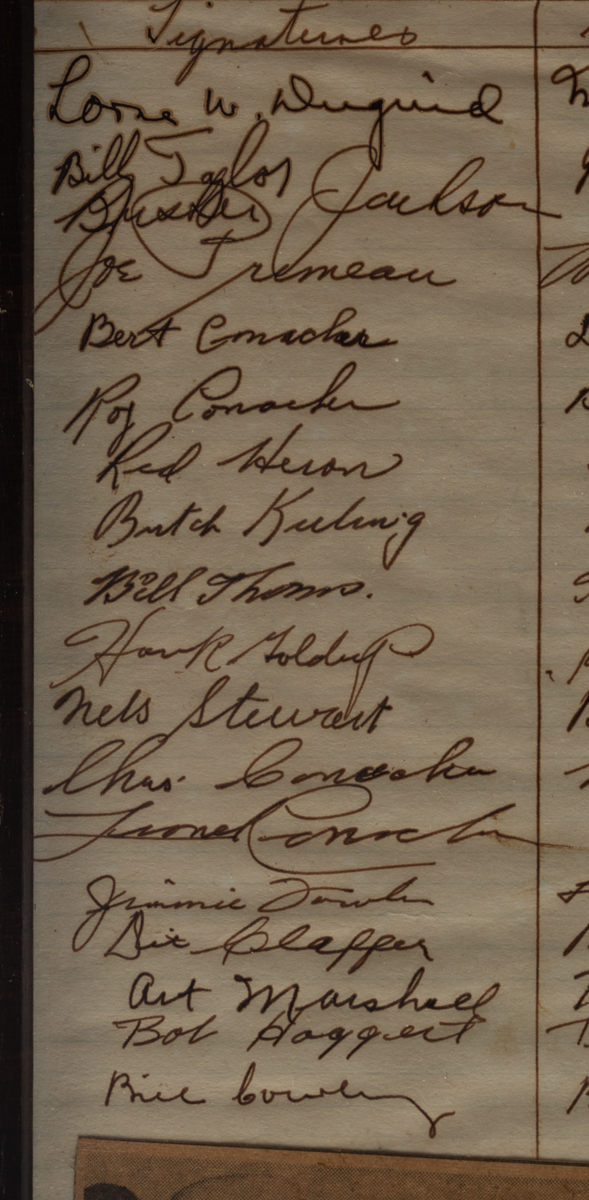 Signatures
Lorne W. Duguid
Billy Taylor
Busher Jackson
Joe Primeau
Bert Conacher
Roy Conacher
Red Heron
Butch Keeling
Bill Thoms.
Hank Goldup
Nels Stewart
Chas. Conacher
Lionel Conacher
Jimmie Fowler
Dit Clapper
Art Marshall
Bob Hoggert
Bill Cowley